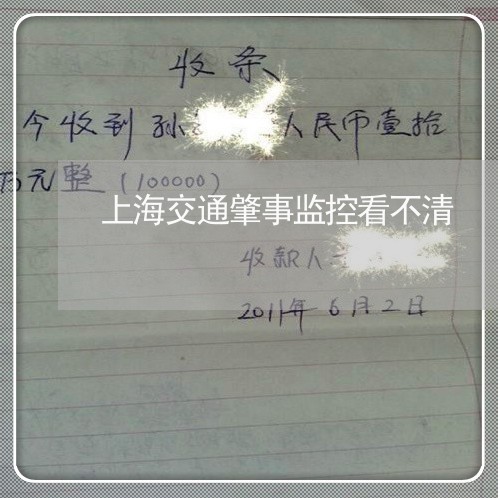 收条
今收到孙 人民币壹拾
万元整(100000)
上海交通肇事监控看不清
收款人
2011年6月2日